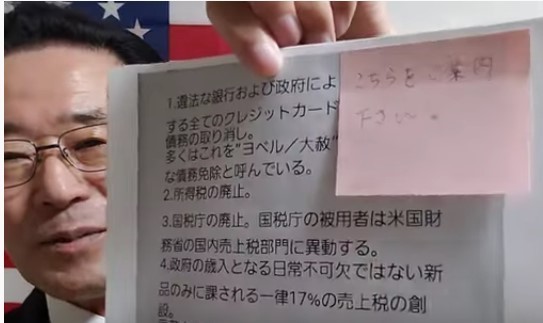 こちらをご案内
下さい。
1.違法な銀行および政府によ
する全てのクレジットカード
債務の取り消し。
多くはこれを“ヨベル／大赦”
な債務免除と呼んでいる。
2.所得税の廃止。
3.国税庁の廃止。国税庁の被用者は米国財
務省の国内売上税部門に異動する。
4.政府の歳入となる日常不可欠ではない新
品のみに課される一律17%の売上税の創
設。